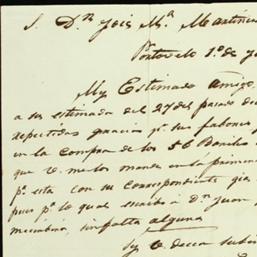 S. Dn. José Ma. Martínez
Portovelo 1o. de J
Muy Estimado Amigo
a su estimada del 27 del pasado de
repetidas gracias pr. sus fabores
en la compra de los 56
que V. me los mande en la primera
pa. esta con su correspondiente guia
pues pa. lo qual escribo a Dn. Juan
sin falta alguna
Sy V. decea